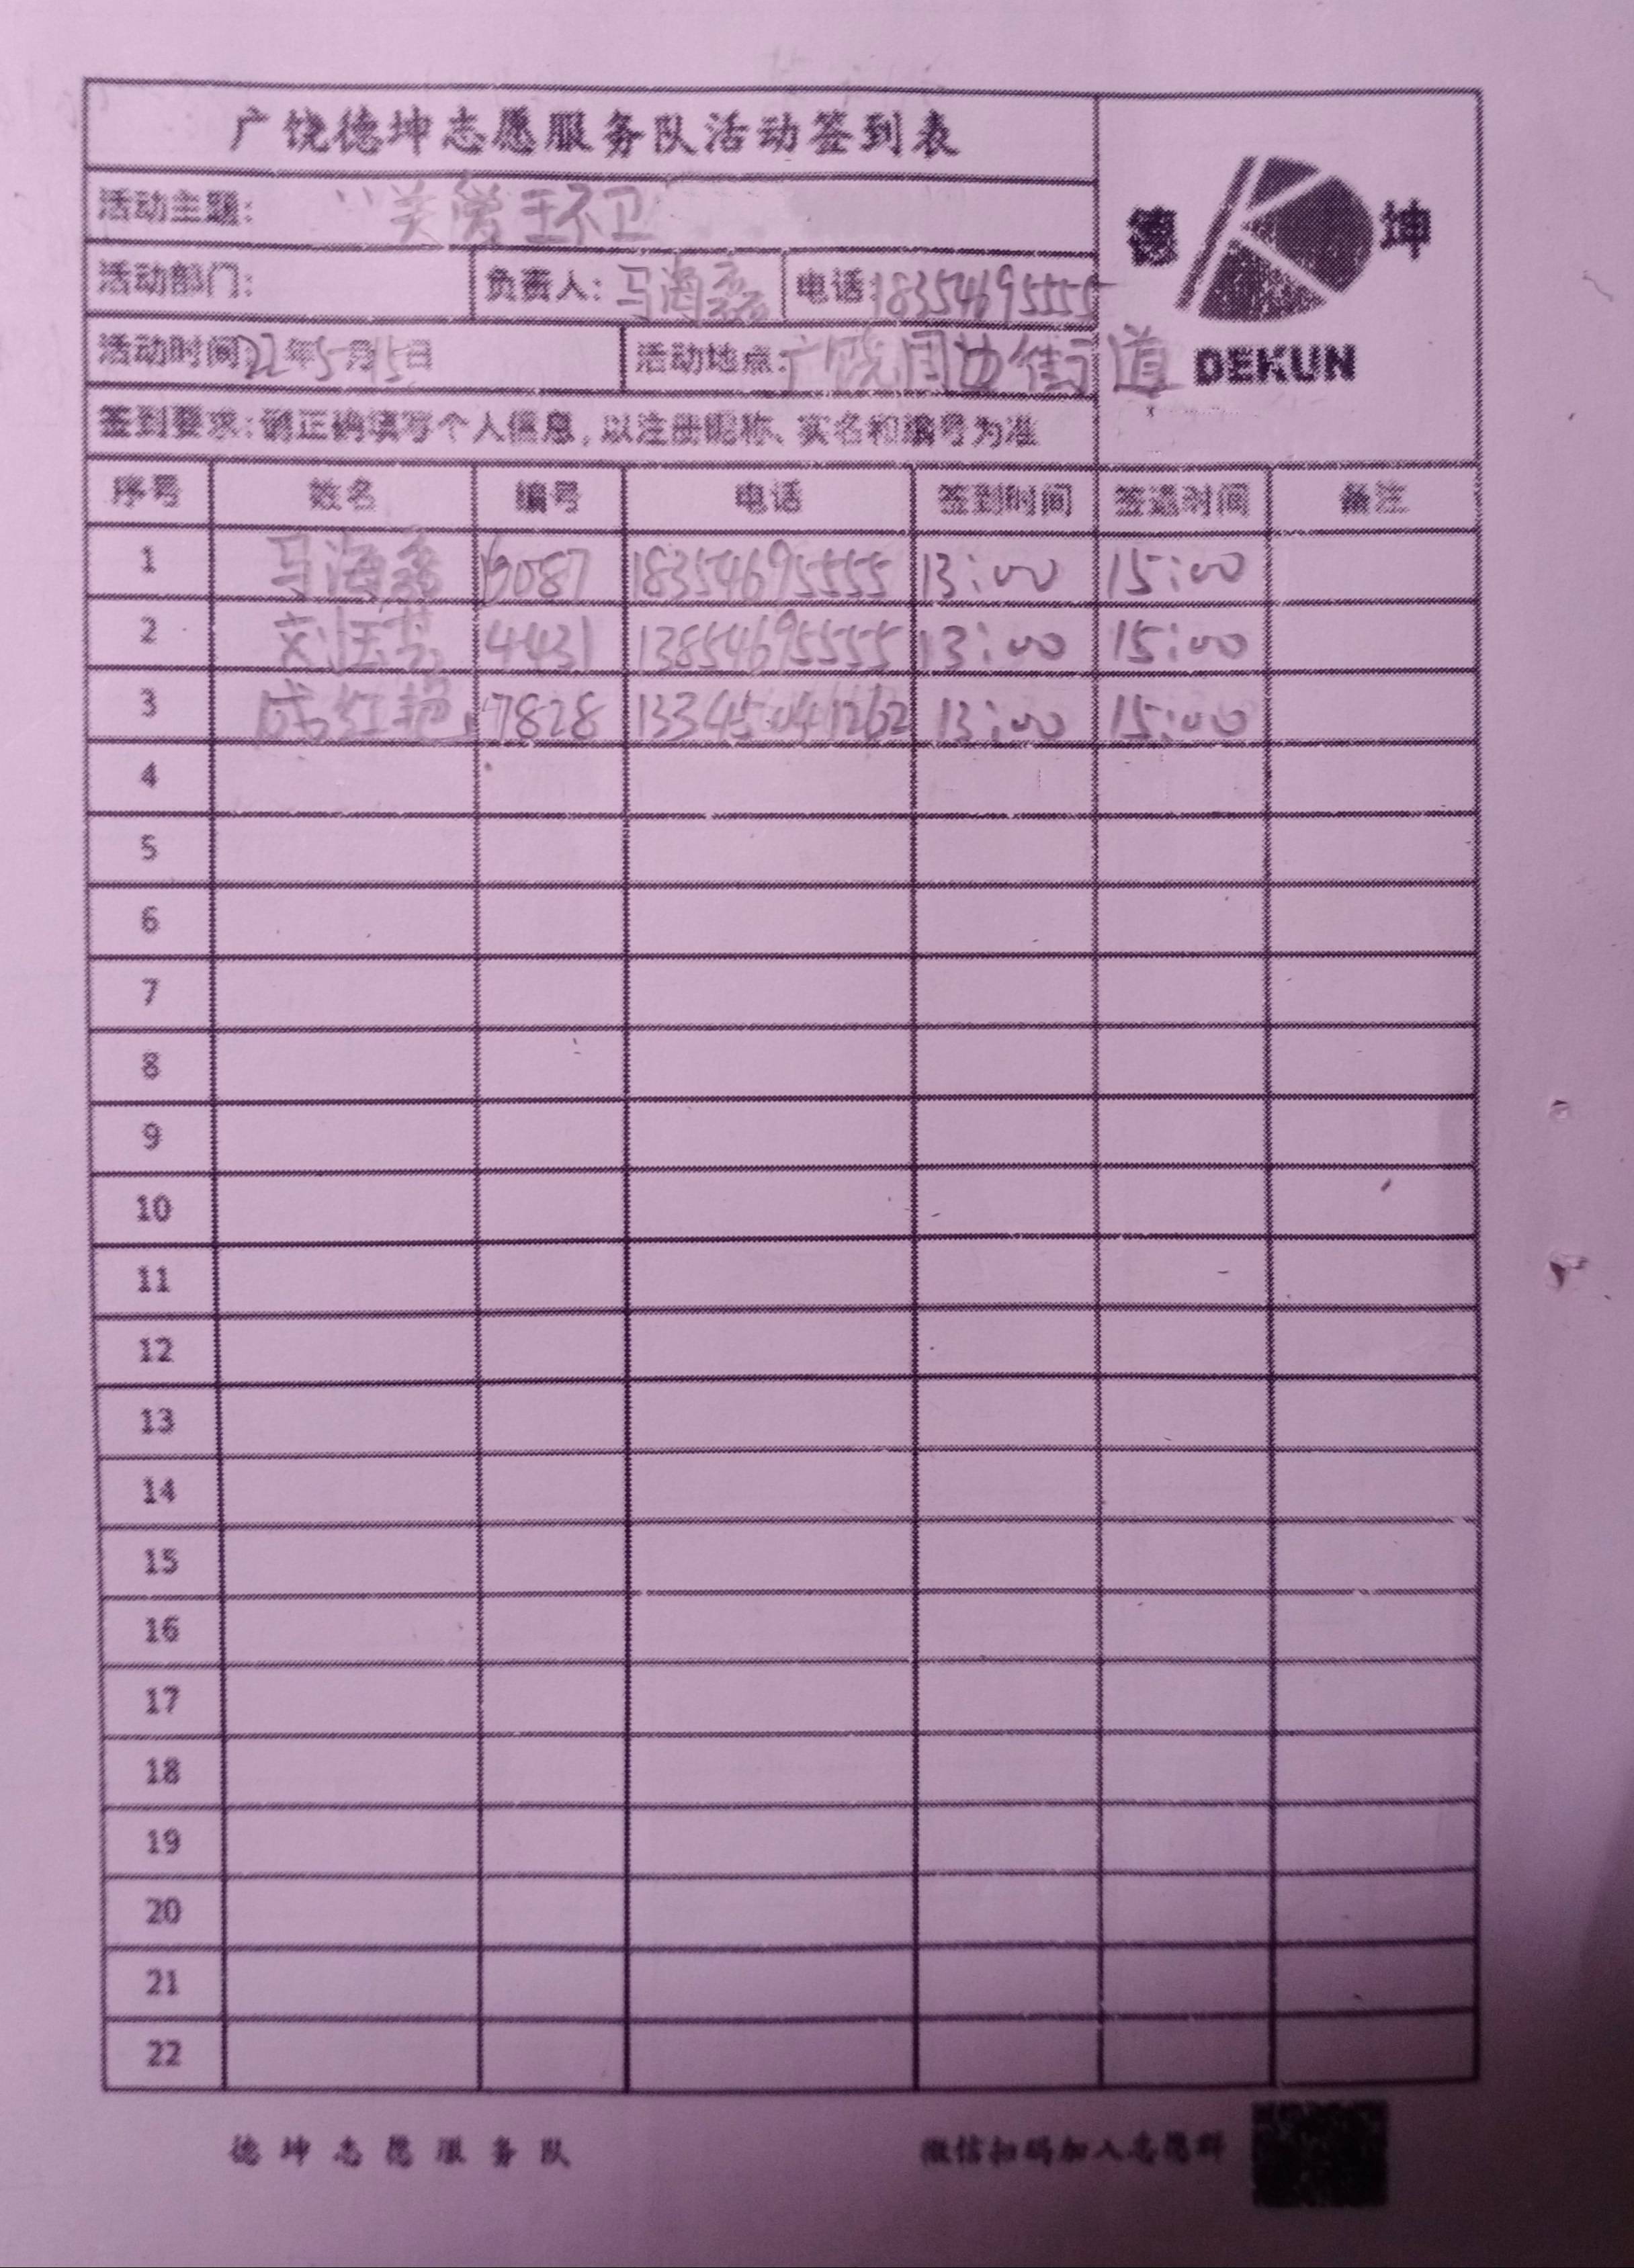 广饶德坤志愿服务队活动签到表
活动主题: "关爱环卫
德 坤
DEKUN
活动部门: 负责人: 马海鑫 电话: 18354695555
活动时间: 22年5月15日 活动地点: 广饶周边街道
签到要求: 请正确填写个人信息, 以注册昵称、实名和编号为准
序号 姓名 编号 电话 签到时间 签退时间 备注
1 马海鑫 6087 18354695555 13:00 15:00
2 4431 13854695555 13:00 15:00
3 成红艳 7828 13345041262 13:00 15:00
4
5
6
7
8
9
10
11
12
13
14
15
16
17
18
19
20
21
22
德坤志愿服务队 微信扫码加入志愿群